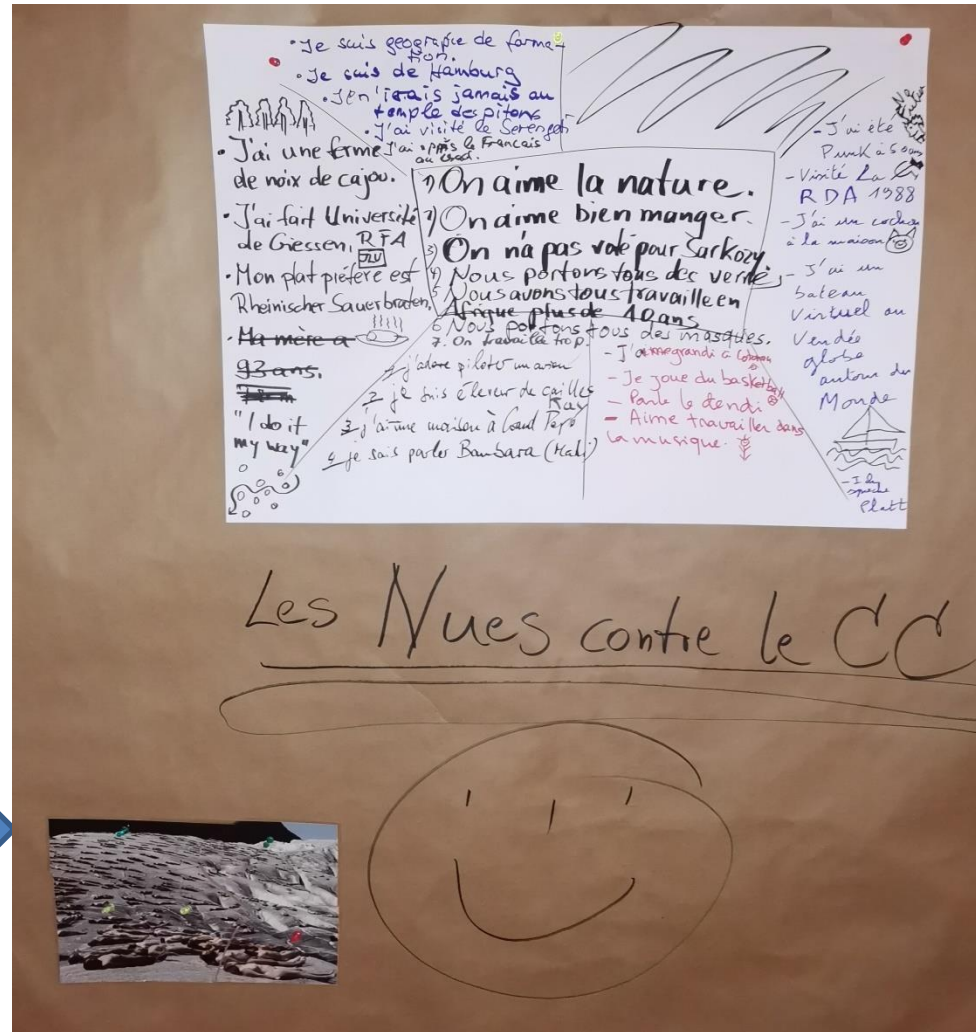 • Je suis geograpie de forma-
tion.
• Je suis de Hamburg
• J'en'irais jamais au
temple des pitons
• J'ai visité le Serengeti
J'ai appris le Francais
au
• J'ai une ferme
de noix de cajou.
• J'ai fait Université
de Giessen, RFA
JLU
• Mon plat préfere est
Rheinischer Sauerbraten,
• Ma mère a
93 ans.
"I do it
my way"
1) On aime la nature.
2) On aime bien manger.
3) On n'a pas voté pour Sarkozy
4) Nous portons tous des verres
5 Nous avons tous travaille en
Afrique plus de 10 ans
6. Nous portons tous des masques.
7. On travaille trop.
1 j'adore piloter un avion
2 je suis éleveur de cailles
3 j'ai une maison à Grand Popo
4 je sais parler Bambara (Mali)
- J'ai grandi à Cotonou
- Je joue du basketball
- Parle le dendi
- Aime travailler dans
la musique.
- J'ai été
Punk à 50 ans
- Visité La
RDA 1988
- J'ai un cochon
à la maison
- J'ai un
bateau
Virtuel au
Vendée
globe
autour du
Monde
- I
Platt
Les Nues contre le CC